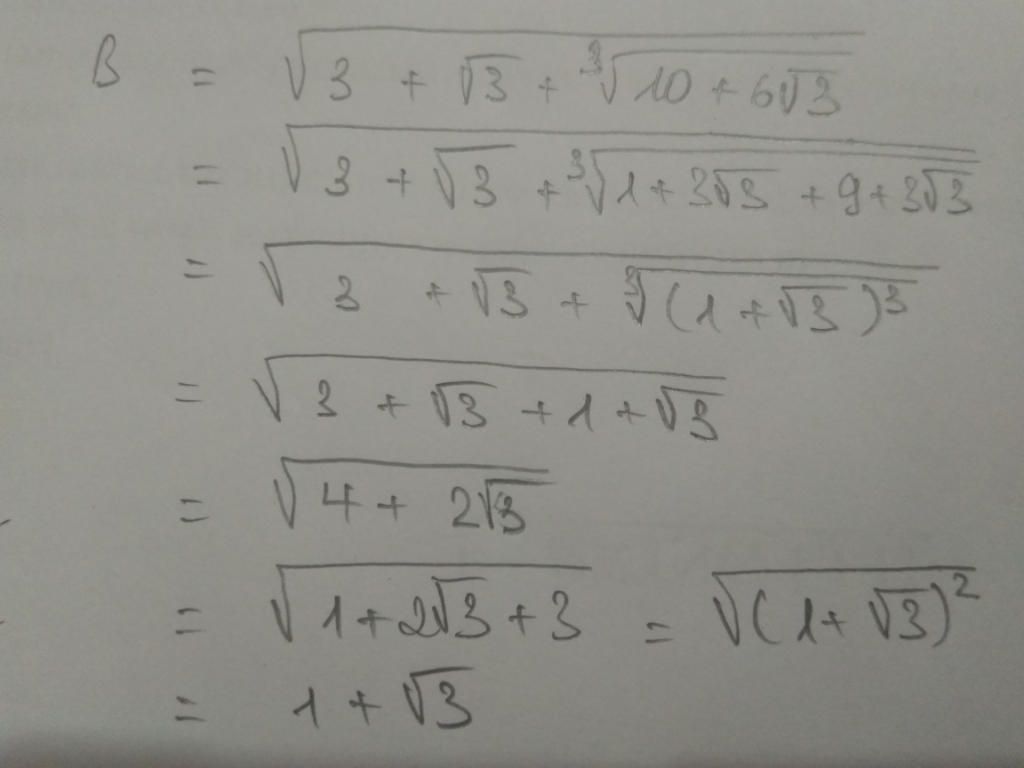 B = √(3 + √3 + ∛(10 + 6√3))
= √(3 + √3 + ∛(1 + 3√3 + 9 + 3√3))
= √(3 + √3 + ∛((1 + √3)³))
= √(3 + √3 + 1 + √3)
= √(4 + 2√3)
= √(1 + 2√3 + 3) = √((1 + √3)²)
= 1 + √3